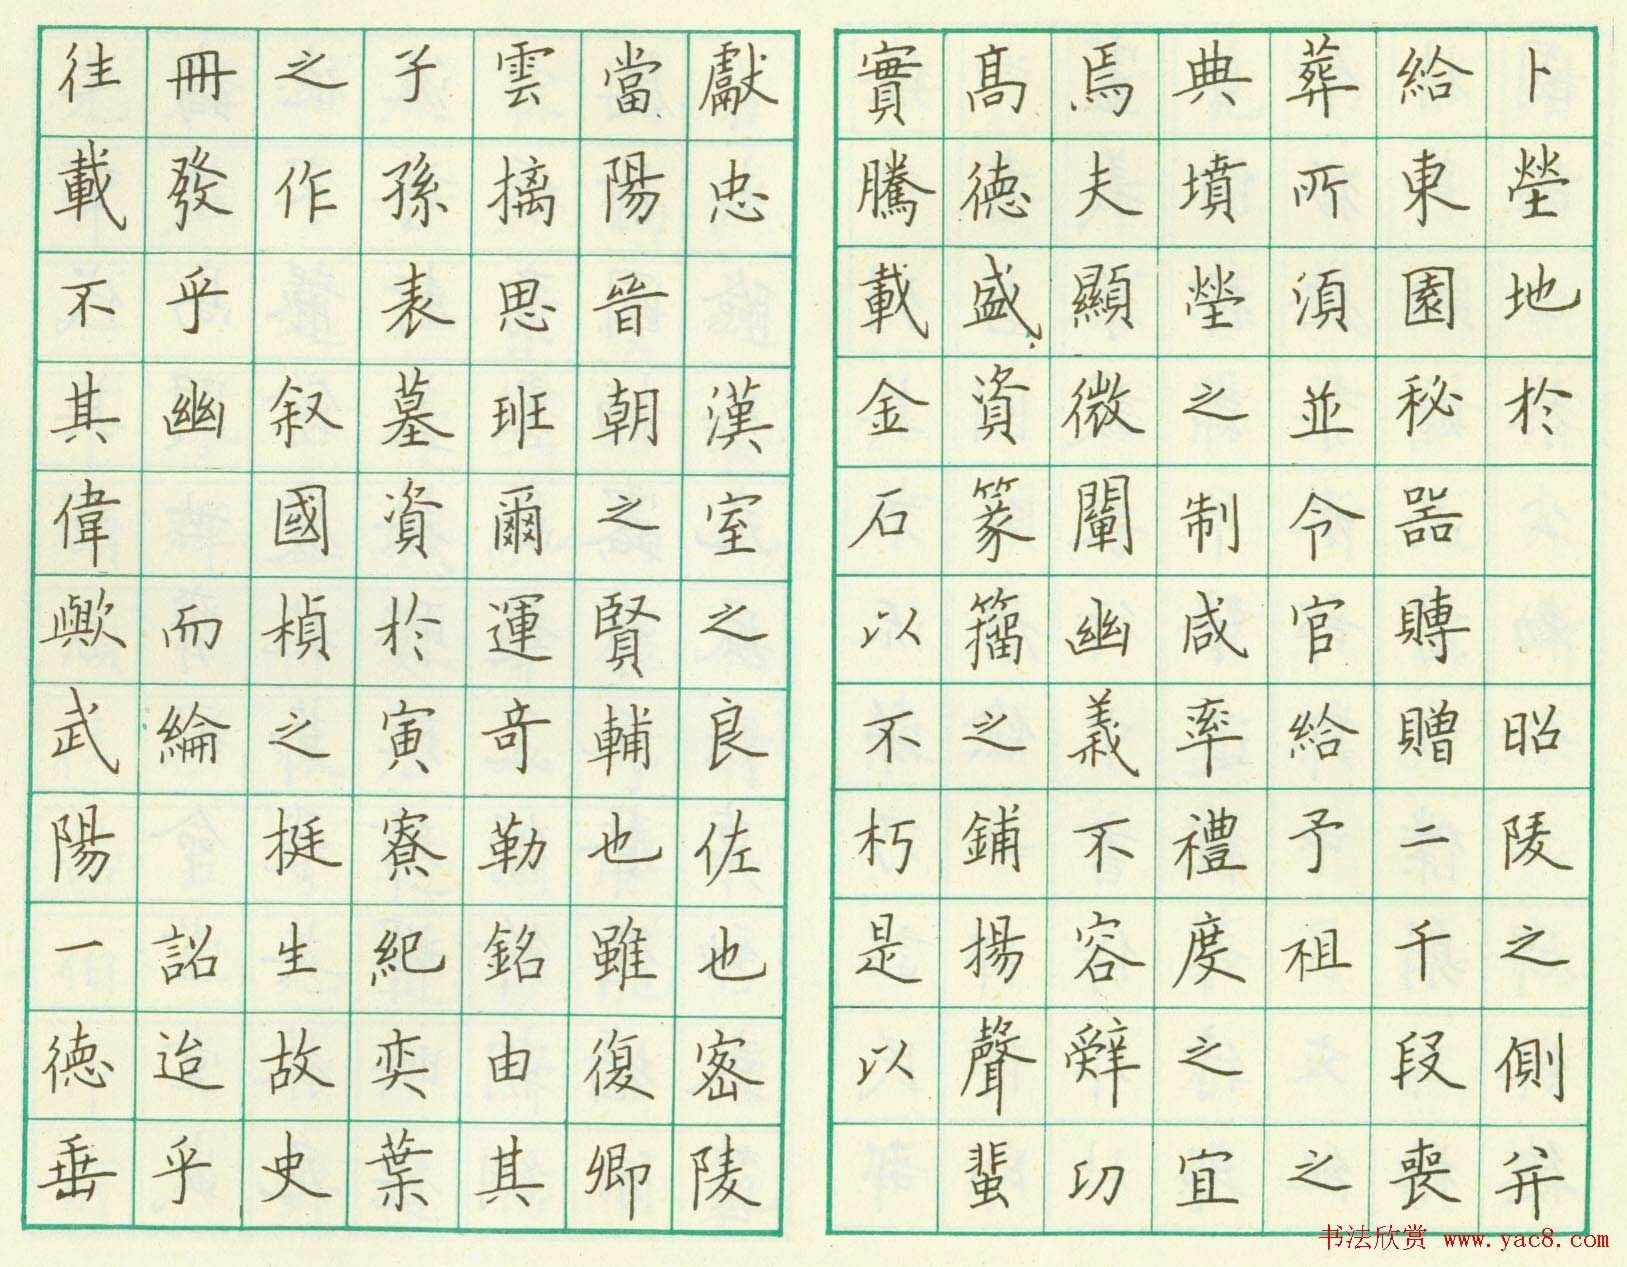 卜塋地於昭陵之側并
給東園秘器賻贈二千段喪
葬所須並令官給予祖之
典墳塋之制咸率禮度之宜
焉夫顯微闡幽義不容辤切
高德盛資篆籀之鋪揚聲蜚
實騰載金石以不朽是以
獻忠漢室之良佐也密陵
當陽晉朝之賢輔也雖復卿
雲摛思班爾運奇勒銘由其
子孫表墓資於寅寮紀奕葉
之作叙國楨之挺生故史
冊發乎幽而綸詔迨乎
往載不其偉歟武陽一德垂
书法欣赏 www.yac8.com